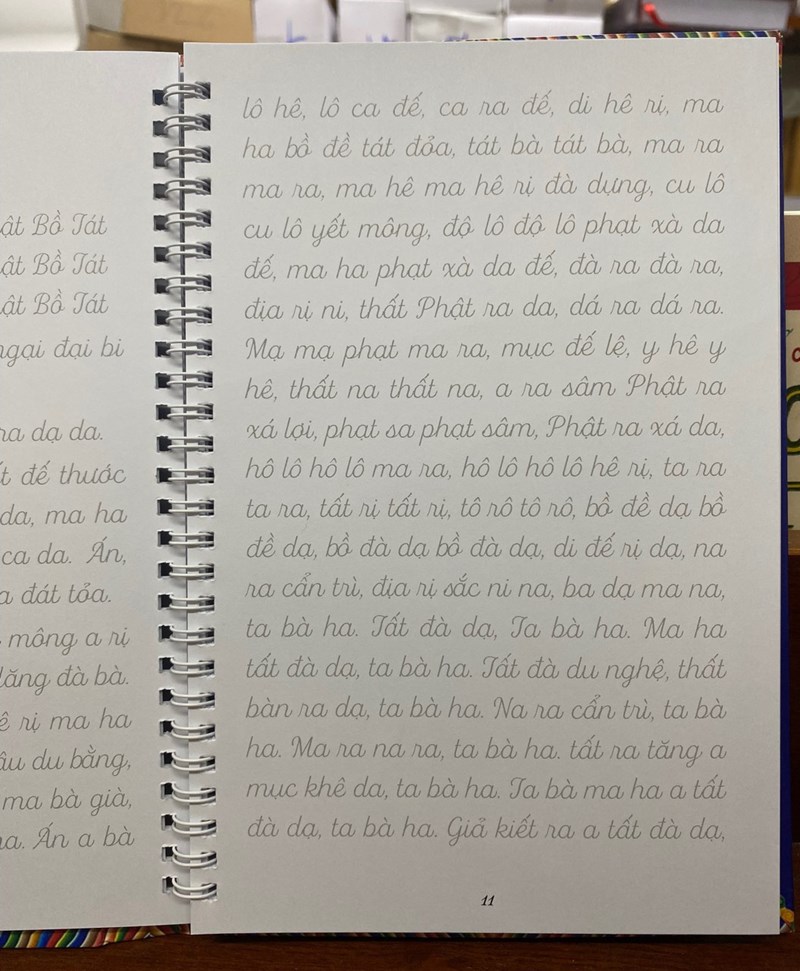 ật Bồ Tát
ật Bồ Tát
ật Bồ Tát
ngại đại bi
ra dạ da.
đế thước
da, ma ha
ca da. Án,
đát tỏa.
mông a rị
đà bà.
rị ma ha
du bằng,
ma bà già,
Án a bà
lô hê, lô ca đế, ca ra đế, di hê rị, ma
ha bồ đề tát đỏa, tát bà tát bà, ma ra
ma ra, ma hê ma hê rị đà dựng, cu lô
cu lô yết mông, độ lô độ lô phạt xà da
đế, ma ha phạt xà da đế, đà ra đà ra,
địa rị ni, thất Phật ra da, dá ra dá ra.
Mạ mạ phạt ma ra, mục đế lệ, y hê y
hê, thất na thất na, a ra sâm Phật ra
xá lợi, phạt sa phạt sâm, Phật ra xá da,
hô lô hô lô ma ra, hô lô hô lô hê rị, ta ra
ta ra, tất rị tất rị, tô rô tô rô, bồ đề dạ bồ
đề dạ, bồ đà dạ bồ đà dạ, di đế rị dạ, na
ra cẩn trì, địa rị sắc ni na, ba dạ ma na,
ta bà ha. Tất đà dạ, Ta bà ha. Ma ha
tất đà dạ, ta bà ha. Tất đà du nghệ, thất
bàn ra dạ, ta bà ha. Na ra cẩn trì, ta bà
ha. Ma ra na ra, ta bà ha. tất ra tăng a
mục khê da, ta bà ha. Ta bà ma ha a tất
đà dạ, ta bà ha. Giả kiết ra a tất đà dạ,
11